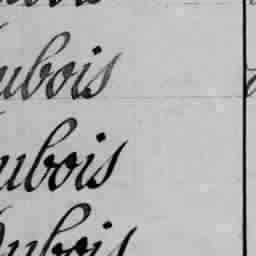 ubois
ubois
Dubois